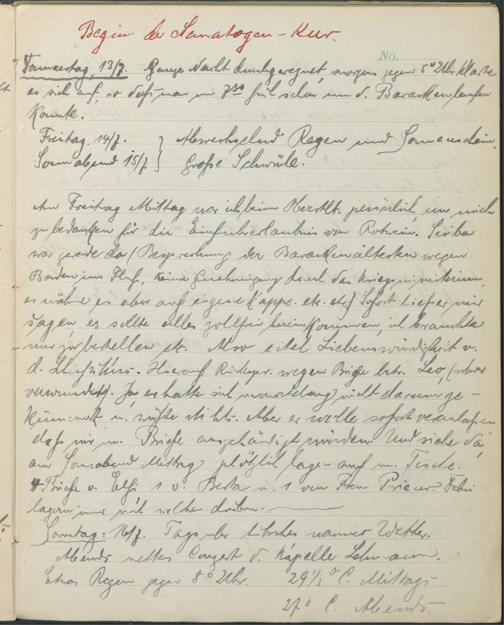 Beginn der Sanatogen-Kur.
No.
Donnerstag, 13/7. Ganze Nacht durchgeregnet, morgens gegen 8° Uhr klarte
es sich auf, so daß man um 9 früh schon um d. Baracken laufen
konnte.
Freitag 14/7. } Abwechselnd Regen und Sonnenschein.
Sonnabend 15/7 } Große Schwüle.
Am Freitag Mittag war ich beim Oberstlt. persönlich, um mich
zu bedanken für die Einfuhrerlaubnis von Rotwein.
war gerade da (Besprechung der Barackenältesten wegen
Baden im Fluß, keine Genehmigung durch das Kriegsministerium,
er nähme es aber auf eigene Kappe. etc. etc) Sofort ließ er mir
sagen, es sollte alles zollfrei hereinkommen, ich brauchte
nur zu bestellen etc. Also eitel Liebenswürdigkeit v.
d. Hierauf Rücksprache wegen Briefe betr. Leo, (schwer
verwundet). Ja, er hatte sich monatelang nicht darum ge-
kümmert u. wüßte nichts. Aber er wolle sofort veranlassen
daß mir m. Briefe ausgehändigt würden. Und siehe da,
am Sonnabend Mittag plötzlich lagen auf m. Tische
4 Briefe v. Elfi 1 v. Berta u. 1 von Frau
lagern nur noch welche drüben.
Sonntag: 16/7. Tags über hübsches warmes Wetter.
Abends nettes Conzert d. Kapelle Lehmann.
Etwas Regen gegen 8° Uhr. 29½° C. Mittags
27° C. Abends.